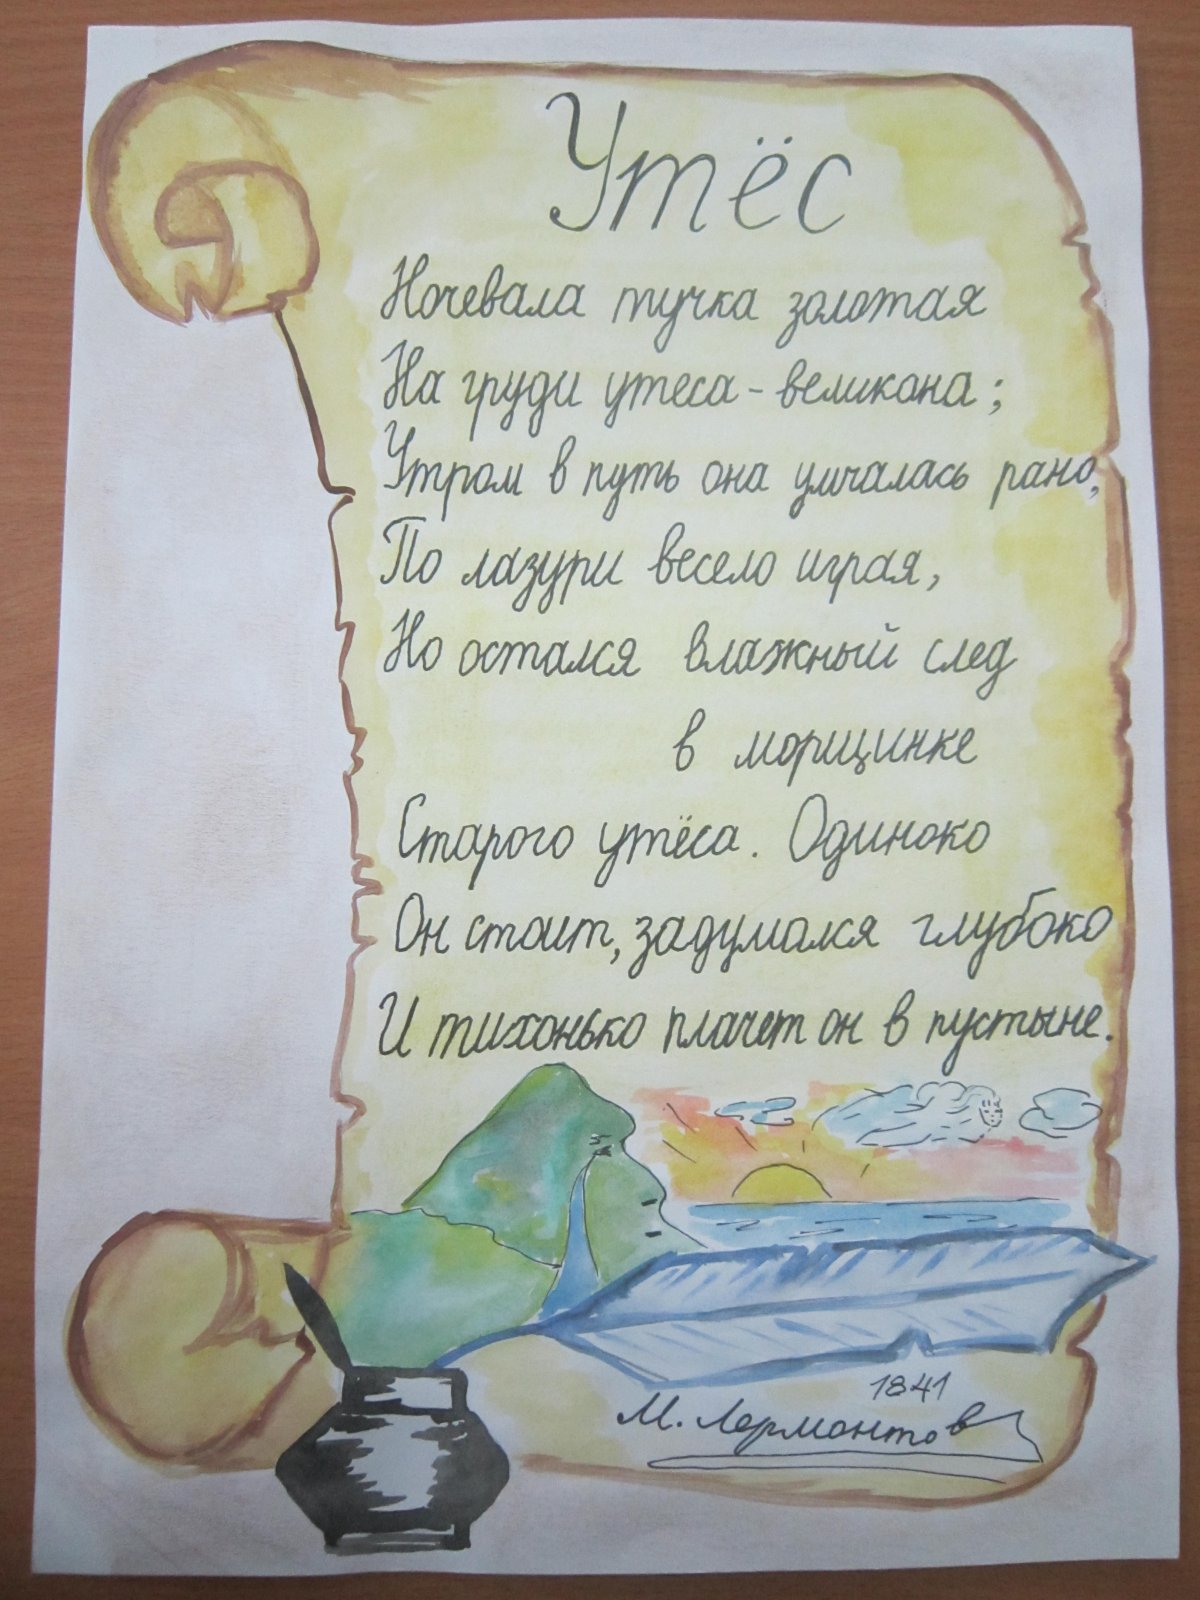 Утёс
Ночевала тучка золотая
На груди утеса - великана;
Утром в путь она умчалась рано,
По лазури весело играя,
Но остался влажный след
в морщинке
Старого утёса. Одиноко
Он стоит, задумался глубоко
И тихонько плачет он в пустыне.
1841
М. Лермонтов